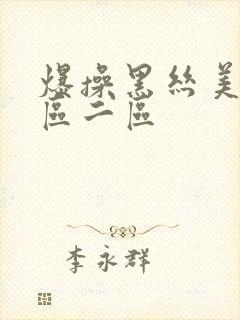 爆操黑丝美
區二區
李永群